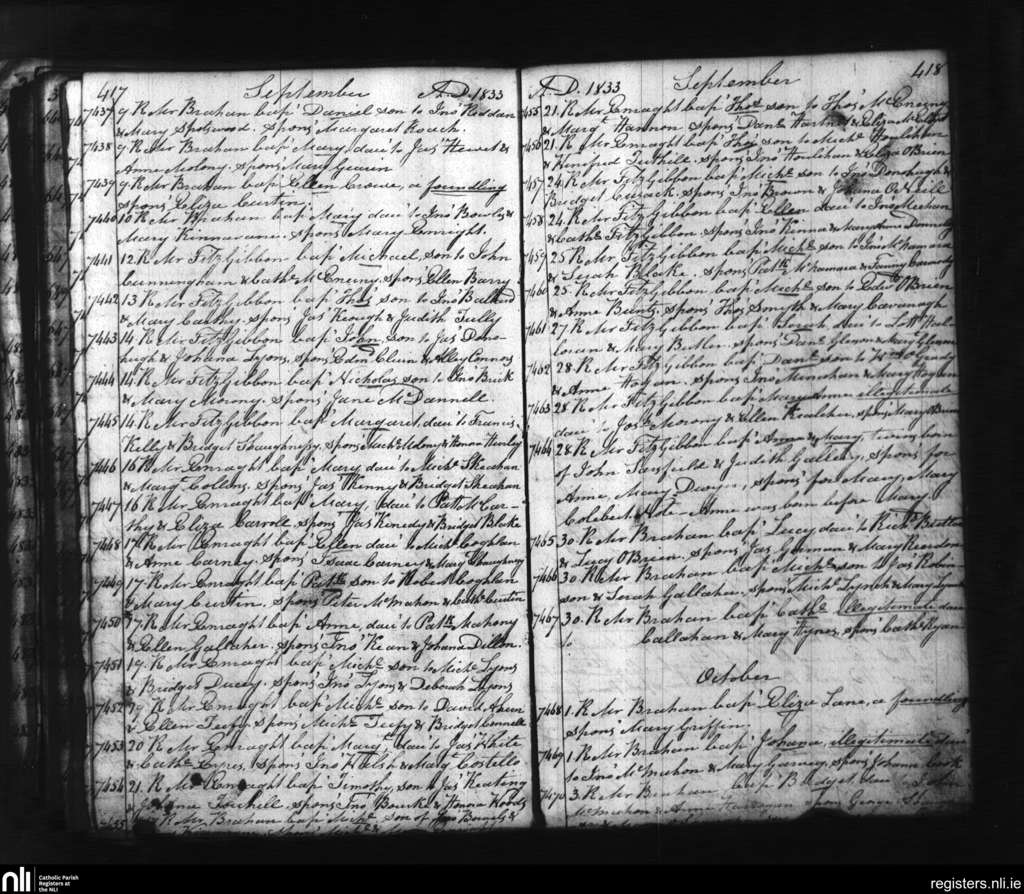 417 September A.D. 1833
7437 9 R Mr Brahan bap Daniel son to Jno Reddan
& Mary Spotswood. Spons Margaret Roach.
7438 9 R Mr Brahan bap Mary, dau to Jas Hewet &
Anne Molony. Spons Mary Guerin
7439 9 R Mr Brahan bap Ellen Crowe, a foundling
Spons Eliza Curtin.
7440 10 R Mr Brahan bap Mary dau to Jno Bowles &
Mary Kinnavane. Spons Mary Enright.
7441 12 R Mr FitzGibbon bap Michael, son to John
Cunningham & Cathe McEneiny. Spons Ellen Barry
7442 13 R Mr FitzGibbon bap Thos son to Jno Ballard
& Mary Carthy, Spons Jas Keough & Judith Tully
7443 14 R Mr FitzGibbon bap John son to Jas Dono-
hugh & Johana Lyons, Spons Edm Clune & Alley Connors
7444 14 R Mr FitzGibbon bap Nicholas, son to Jno Brick
& Mary Morony. Spons Jane McDannell.
7445 14 R Mr FitzGibbon bap Margaret, dau to Francis
Kelly & Bridget Shaughnessy, Spons Michl & Honor Hurley
7446 16 R Mr Enraght bap Mary dau to Michl Skeahan
& Margt Collins. Spons Jas Kenny & Bridget Skeahan
7447 16 R Mr Enraght bap Mary, dau to Patt McCar-
thy & Eliza Carroll. Spons Jas Kenedy & Bridget Blake
7448 17 R Mr Enraght bap Ellen dau to Michl Coghlen
& Anne Carney. Spons Isaac Carney & Mary Shaughnessy
7449 17 R Mr Enraght bap Patt son to Robt McCoghlen
& Mary Curtin. Spons Peter McMahon & Cathe Curtin
7450 17 R Mr Enraght bap Anne, dau to Patt Mahony
& Ellen Gallaher. Spons Jno Kean & Johana Dillon.
7451 19 R Mr Enraght bap Michl son to Michl Lyons
& Bridget Ducey. Spons Jno Lyons & Deborah Lyons
7452 19 R Mr Enraght bap Michl son to David Ahern
& Ellen Teefy Spons Michl Teefy & Bridget Connell
7453 20 R Mr Enraght bap Mary, dau to Jas White
& Cathe Cyres, Spons Jno Welsh & Margt Costello
7454 21 R Mr Enraght bap Timothy, son to Jas Keating
& Johana Tuthell. Spons Jno Bourke & Honora Woods
7455 R Mr Brahan bap Michl son of Jno Bennets &
A.D. 1833 September 418
7455 21 R Mr Enraght bap Thos son to Thos McEneiny
& Margt Hannon Spons Danl Hartnett & Eliza
7456 21 R Mr Enraght bap Thos son to Michl Houlehan
& Winifred Tuthell. Spons Jno Houlehan & Eliza OBrien
7457 24 R Mr FitzGibbon bap Michl son to Jno Donohugh &
Bridget Cusack. Spons Jno Brown & Johana ONeill
7458 24 R Mr FitzGibbon bap Ellen dau to Jno Meehan
& Cathe FitzGibbon. Spons Jno Kenna & Maryanne Downey
7459 25 R Mr FitzGibbon bap Michl son to Jno McNamara
& Sarah Blake. Spons Patt McNamara & Fanny
7460 25 R Mr FitzGibbon bap Michl son to Edm OBrien
& Anne Bunts. Spons Thos Smyth & Mary Cavanagh
7461 27 R Mr FitzGibbon bap dau to
& Mary Butler. Spons Danl Glynn & Mary
7462 28 R Mr FitzGibbon bap Danl son to Wm OGrady
& Anne Hogan. Spons Jno Minehan & Mary Hogan
7463 28 R Mr FitzGibbon bap Mary Anne illegitimate
dau to Jas Morony & Ellen Kealeher, spons Mary OBrien
7464 28 R Mr FitzGibbon bap Anne & Mary, twins, born
of John Sarsfield & Judith Gallery, Spons for
Anne, Mary Davin, Spons for Mary, Mary
Colebert. Note - Anne was born before Mary
7465 30 R Mr Brahan bap Lucy dau to Richd Britton
& Lucy OBrien. Spons Jas Gorman & Mary Reardon
7466 30 R Mr Brahan bap Michl son to Jas Robin-
son & Sarah Gallaher. Spons Michl Lynch & Mary Lynch
7467 30. R Mr Brahan bap Cathe illegitimate dau
to Callahan & Mary Hynes, spons Cathe Ryan
October
7468 1. R Mr Brahan bap Eliza Lane, a foundling
spons Mary Griffin.
7469 1. R Mr Brahan bap Johana, illegitimate dau
to Jno McMahon & Mary Garvey, spons Johana Cook
7470 3. R Mr Brahan bap Bridget dau John
McMahon & Anne spons George
nli Catholic Parish
Registers at
the NLI
registers.nli.ie